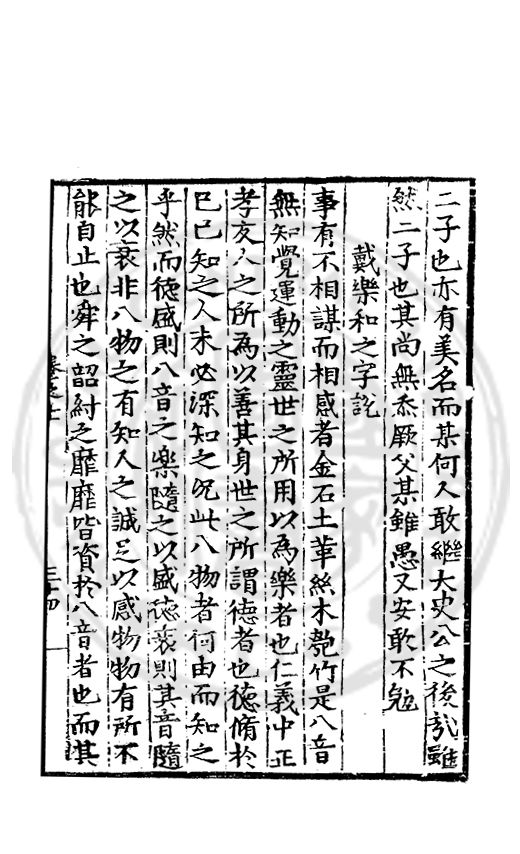 二子也亦有美名而某何人敢繼太史公之後哉雖
然二子也其尚無忝厥父某雖愚又安敢不勉
戴樂和之字說
事有不相謀而相感者金石土革絲木匏竹是八音
無知覺運動之靈世之所用以為樂者也仁義中正
孝友人之所為以善其身世之所謂德者也德脩於
已已知之人未必深知之况此八物者何由而知之
乎然而德盛則八音之樂隨之以盛德衰則其音隨
之以衰非八物之有知人之誠足以感物物有所不
能自止也舜之韶紂之靡靡皆資於八音者也而其
卷之
三十四